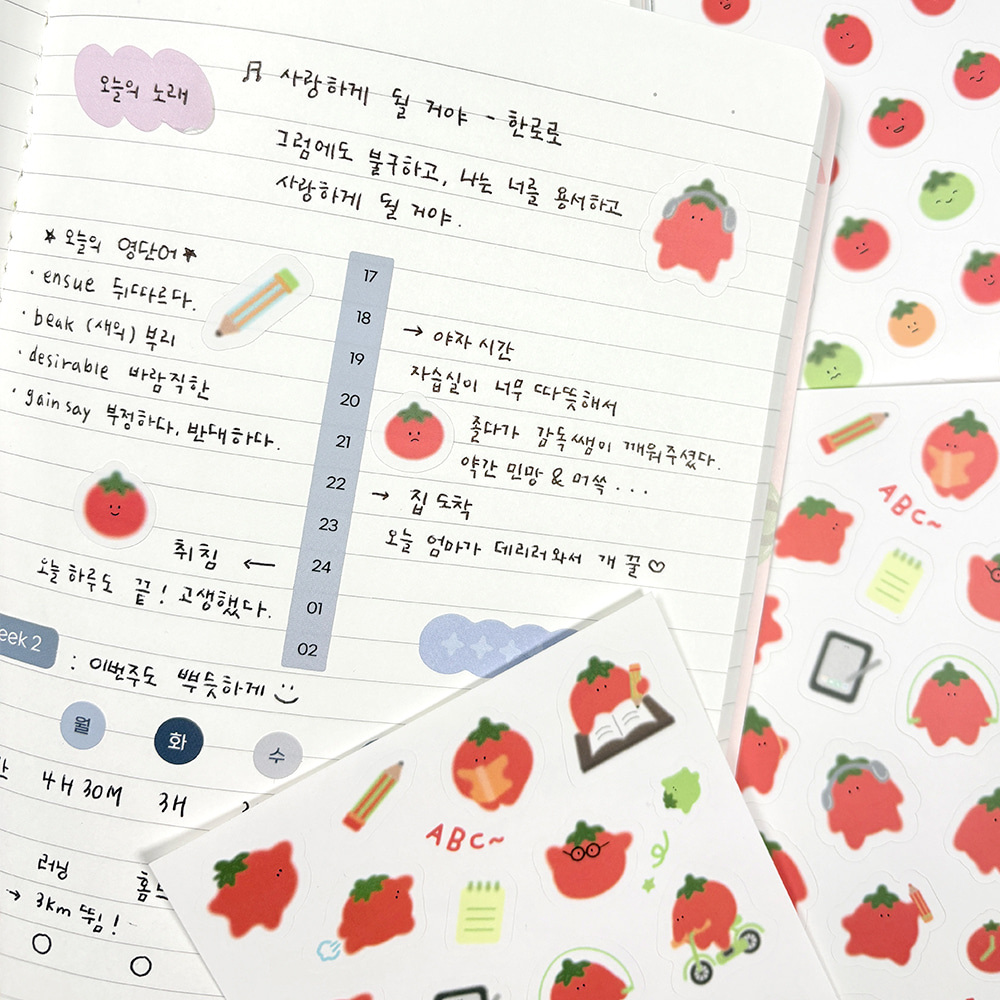 오늘의 노래
♫ 사랑하게 될 거야 - 한로로
그럼에도 불구하고, 나는 너를 용서하고
사랑하게 될 거야.
★오늘의 영단어★
· ensue 뒤따르다.
· beak (새의) 부리
· desirable 바람직한
· gainsay 부정하다, 반대하다.
17
18
19
20
21
22
23
24
01
02
→ 야자 시간
자습실이 너무 따뜻해서
졸다가 감독쌤이 깨워주셨다.
약간 민망 & 머쓱...
→ 집 도착
오늘 엄마가 데리러와서 개꿀♡
취침 ←
오늘 하루도 끝! 고생했다.
eek 2
: 이번주도 뿌듯하게
월 화 수
4H 30M 3H
러닝 홈
→ 3km 뜀!
ABC~
ABC~